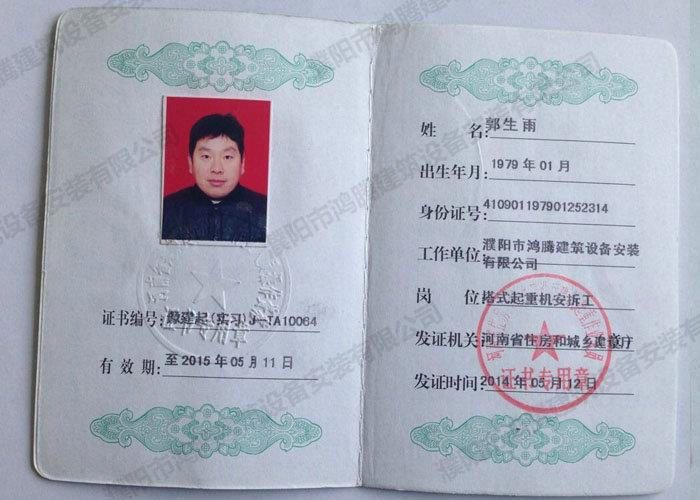 证书编号:豫建起(实习)J-TA10064
有效期:至2015年05月11日
姓名:郭生雨
出生年月:1979年01月
身份证号:410901197901252314
工作单位:濮阳市鸿腾建筑设备安装
有限公司
岗位:塔式起重机安拆工
发证机关:河南省住房和城乡建设厅
发证时间:2014年05月12日
证书专用章
证书专用章
濮阳市鸿腾建筑设备安装有限公司